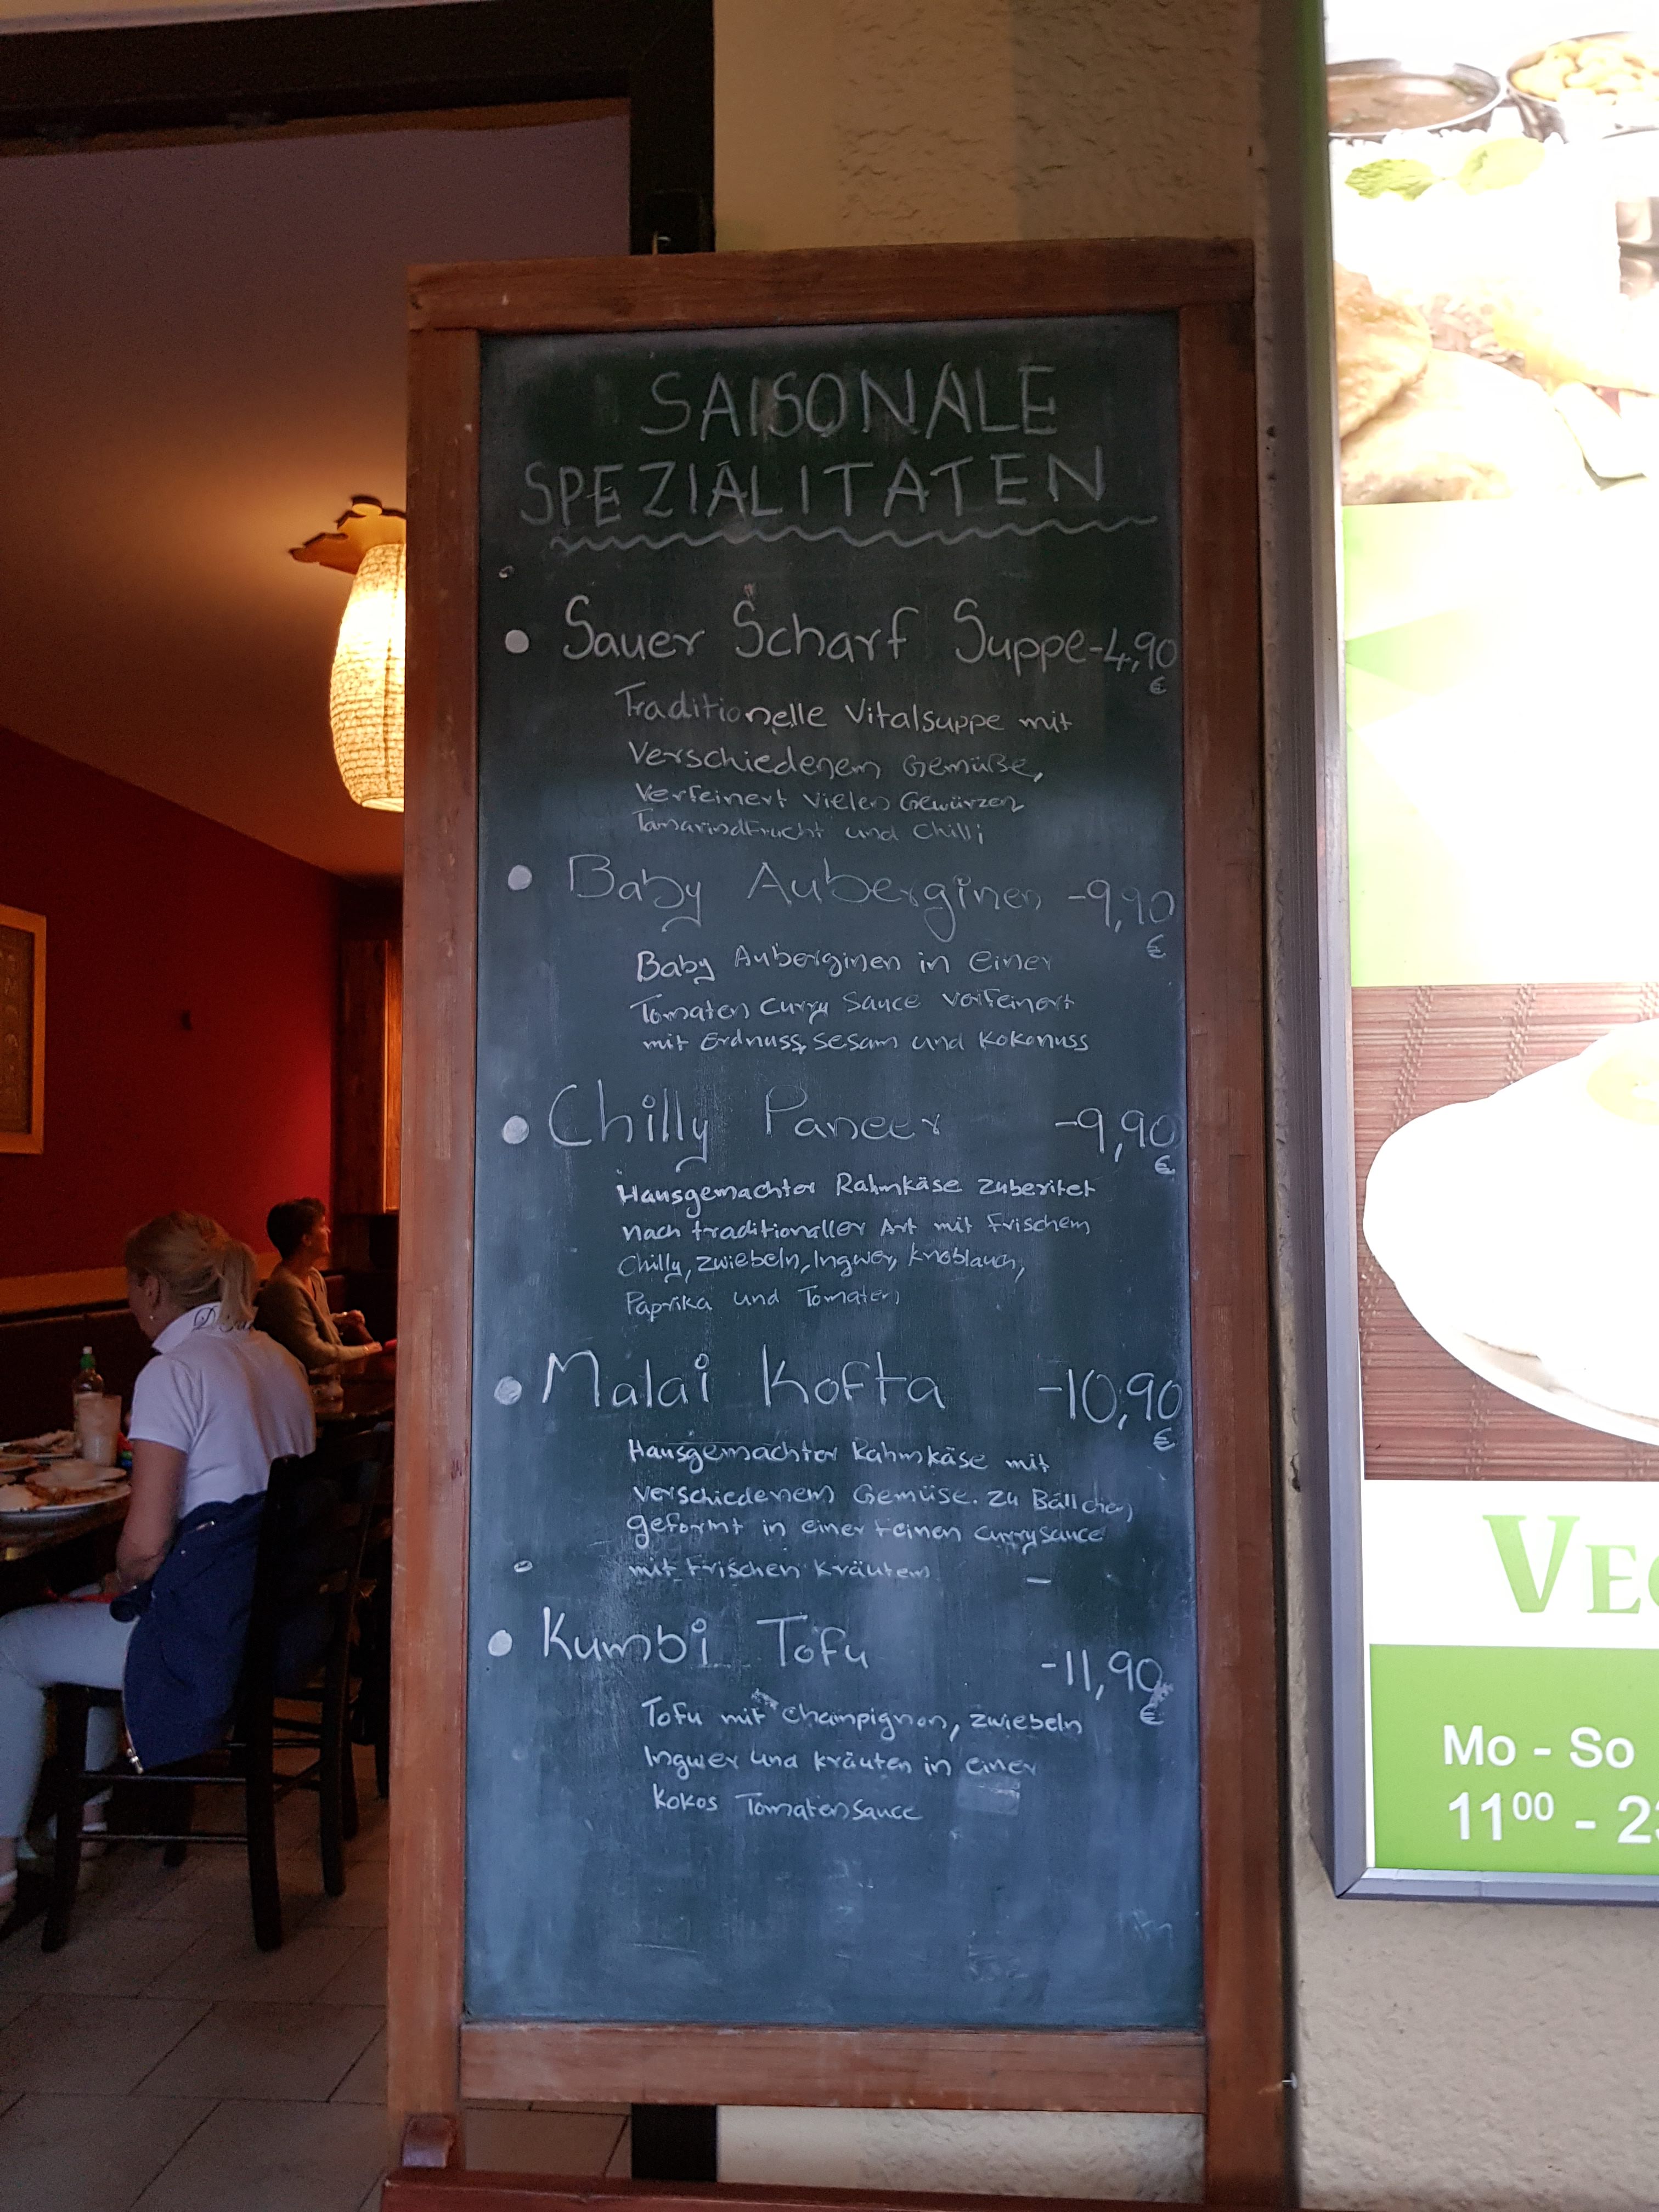 SAISONALE
SPEZIALITATEN
Sauer Scharf Suppe-4,90
€
Traditionelle Vitalsuppe mit
Verschiedenem Gemüße,
Verfeinert vielen Gewürzen
Tamarindfrucht und Chilli
Baby Auberginen -9,90
€
Baby Auberginen in einer
Tomaten Curry Sauce verfeinert
mit Erdnuss, Sesam und Kokonuss
Chilly Paneer -9,90
€
Hausgemachter Rahmkäse zuberitet
nach traditioneller Art mit frischem
Chilly, Zwiebeln, Ingwer, Knoblauch,
Paprika und Tomaten
Malai Kofta -10,90
€
Hausgemachter Rahmkäse mit
verschiedenem Gemüse. Zu Bällchen
geformt in einer feinen Currysauce
mit frischen Kräutern
Kumbi Tofu -11,90
€
Tofu mit Champignon, Zwiebeln
Ingwer und Kräuten in einer
Kokos Tomatensauce
VEG
Mo - So
11⁰⁰ - 23